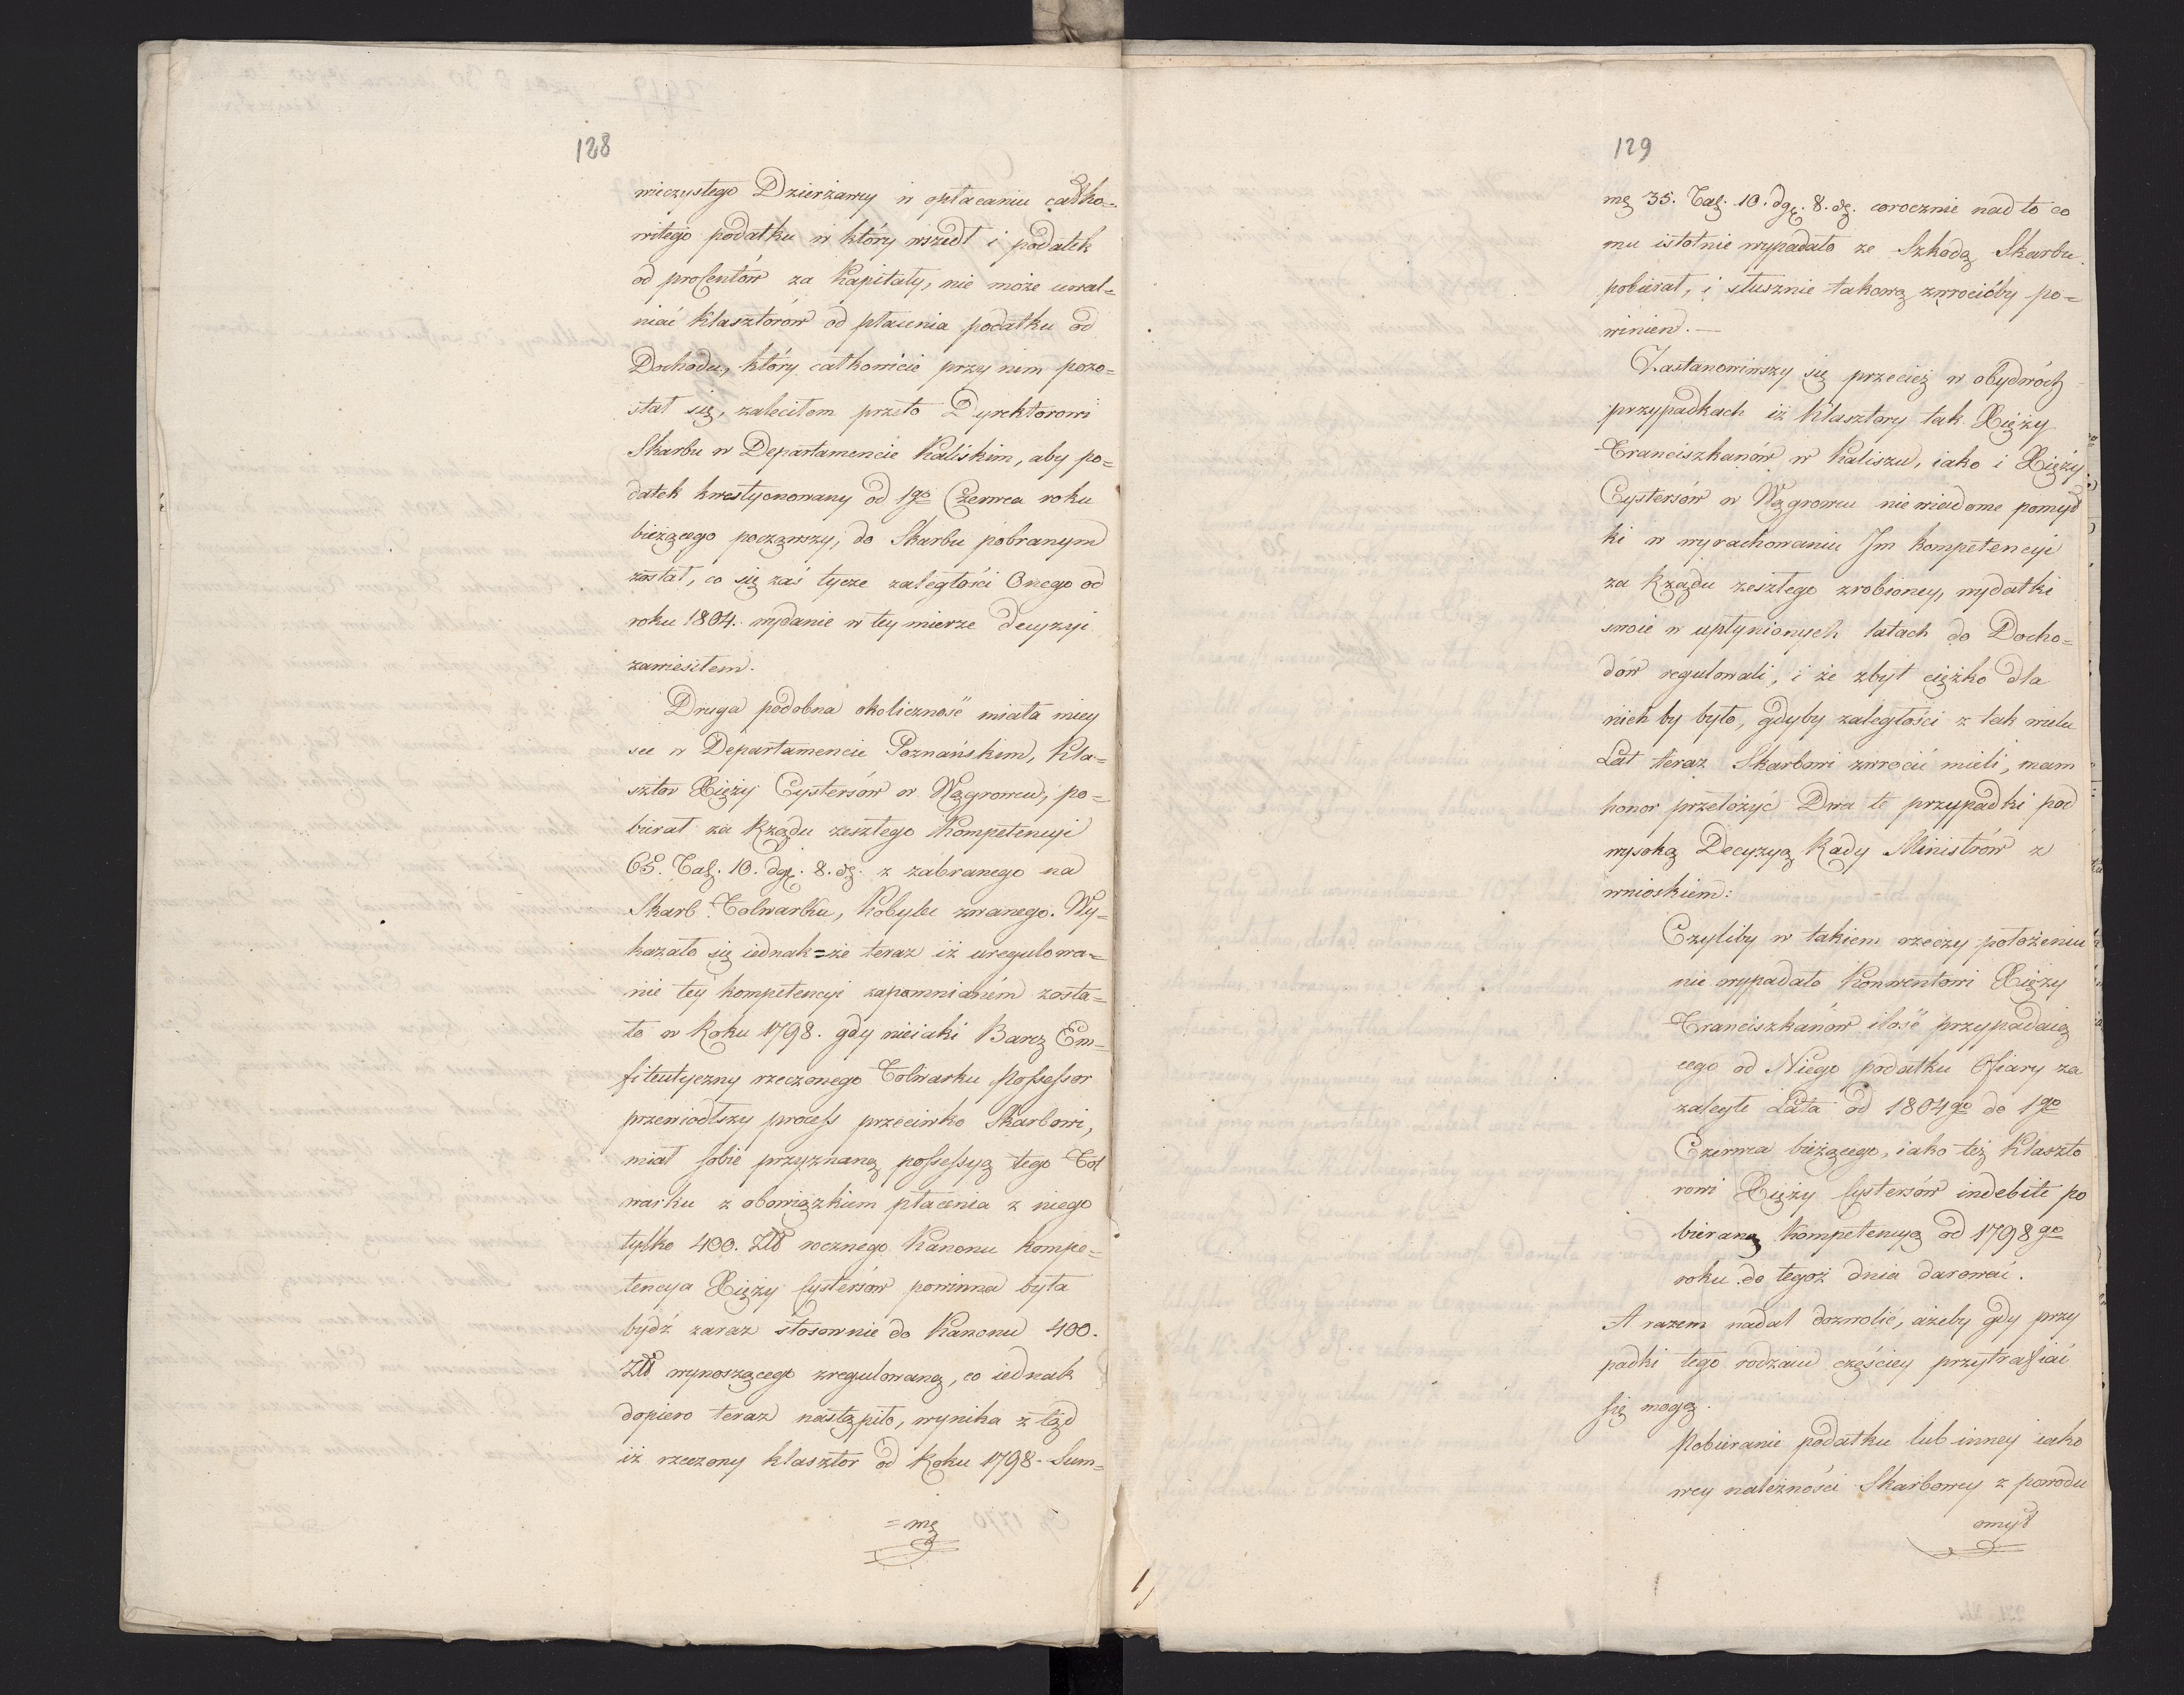 128
wieczystego Dzierżawcy w opłacaniu całko=
witego podatku w który wszedł i podatek
od procentów za Kapitały, nie może uwal=
niać Klasztorów od płacenia podatku od
Dochodu, który całkowicie przy nim pozo=
stał się, zaleciłem przeto Dyrektorowi
Skarbu w Departamencie Kaliskim, aby po=
datek kwestyonowany od 1go Czerwca roku
bieżącego począwszy, do Skarbu pobranym
został, co się zaś tycze zaległości Onego od
roku 1804. wydanie w tey mierze decyzyi
zawiesiłem.
Druga podobna okoliczność miała miey
sce w Departamencie Poznańskim, Kla=
sztor Xięży Cystersów w Wągrowcu, po=
bierał za Rządu zeszłego Kompetencyi
65. Tal. 10. dgr. 8. d. z zabranego na
Skarb Folwarku, Kobylec zwanego. Wy=
kazało się iednak=że teraz iż uregulowa=
nie tey kompetencyi zapomnianém zosta=
ło w Roku 1798. gdy nieiaki Barcz Em=
fiteutyczny rzeczonego Folwarku Possessor
przewiodłszy process przeciwko Skarbowi,
miał sobie przyznaną possessyą tego Fol
warku z obowiązkiem płacenia z niego
tylko 400. Złł rocznego Kanonu kompe=
tencya Xięży Cystersów powinna była
bydź zaraz stosownie do Kanonu 400.
Złł wynoszącego zregulowaną, co iednak
dopiero teraz nastąpiło, wynika z tąd
iż rzeczony klasztor od Roku 1798. Sum=
=mę
129
mę 35. Tal. 10. dgr. 8. d. corocznie nad to co
mu istotnie wypadało ze Szkodą Skarbu
pobierał, i słusznie takową zwrócićby po=
winien.—
Zastanowiwszy się przecież w obydwóch
przypadkach iż Klasztory tak Xięży
Franciszkanów w Kaliszu, iako i Xięży
Cystersów w Wągrowcu niewiadome pomył
ki w wyrachowaniu Im Kompetencyi
za Rządu zeszłego zrobioney, wydatki
swoie w upłynionych latach do Docho=
dów regulowali, i że zbyt ciężko dla
nich by było, gdyby zaległości z tak wielu
Lat teraz Skarbowi zwrócić mieli, mam
honor przełożyć Dwa te przypadki pod
wysoką Decyzyą Rady Ministrów z
wnioskiem:
Czyliby w takiem rzeczy położeniu
nie wypadało Konwentowi Xięży
Franciszkanów ilość przypadaią
cego od Niego podatku Ofiary za
zaległe Lata od 1804go do 1go
Czerwca bieżącego, iako też Klaszto
rowi Xięży Cystersów indebite po
bieraną Kompetencyą od 1798go
roku do tegoż dnia darować.
A razem nadal dozwolić, ażeby gdy przy
padki tego rodzaiu częściey przytrafiać
się mogą.
Pobieranie podatku lub inney iako
wey należności Skarbowey z powodu
omył